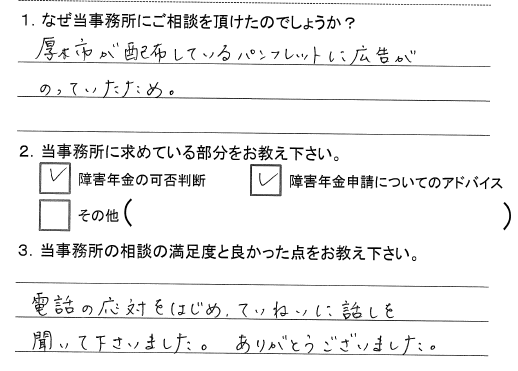 1. なぜ当事務所にご相談を頂けたのでしょうか？
厚木市が配布しているパンフレットに広告が
のっていたため。
2. 当事務所に求めている部分をお教え下さい。
☑ 障害年金の可否判断 ☑ 障害年金申請についてのアドバイス
☐ その他( )
3. 当事務所の相談の満足度と良かった点をお教え下さい。
電話の応対をはじめ、ていねいに話しを
聞いて下さいました。 ありがとうございました。